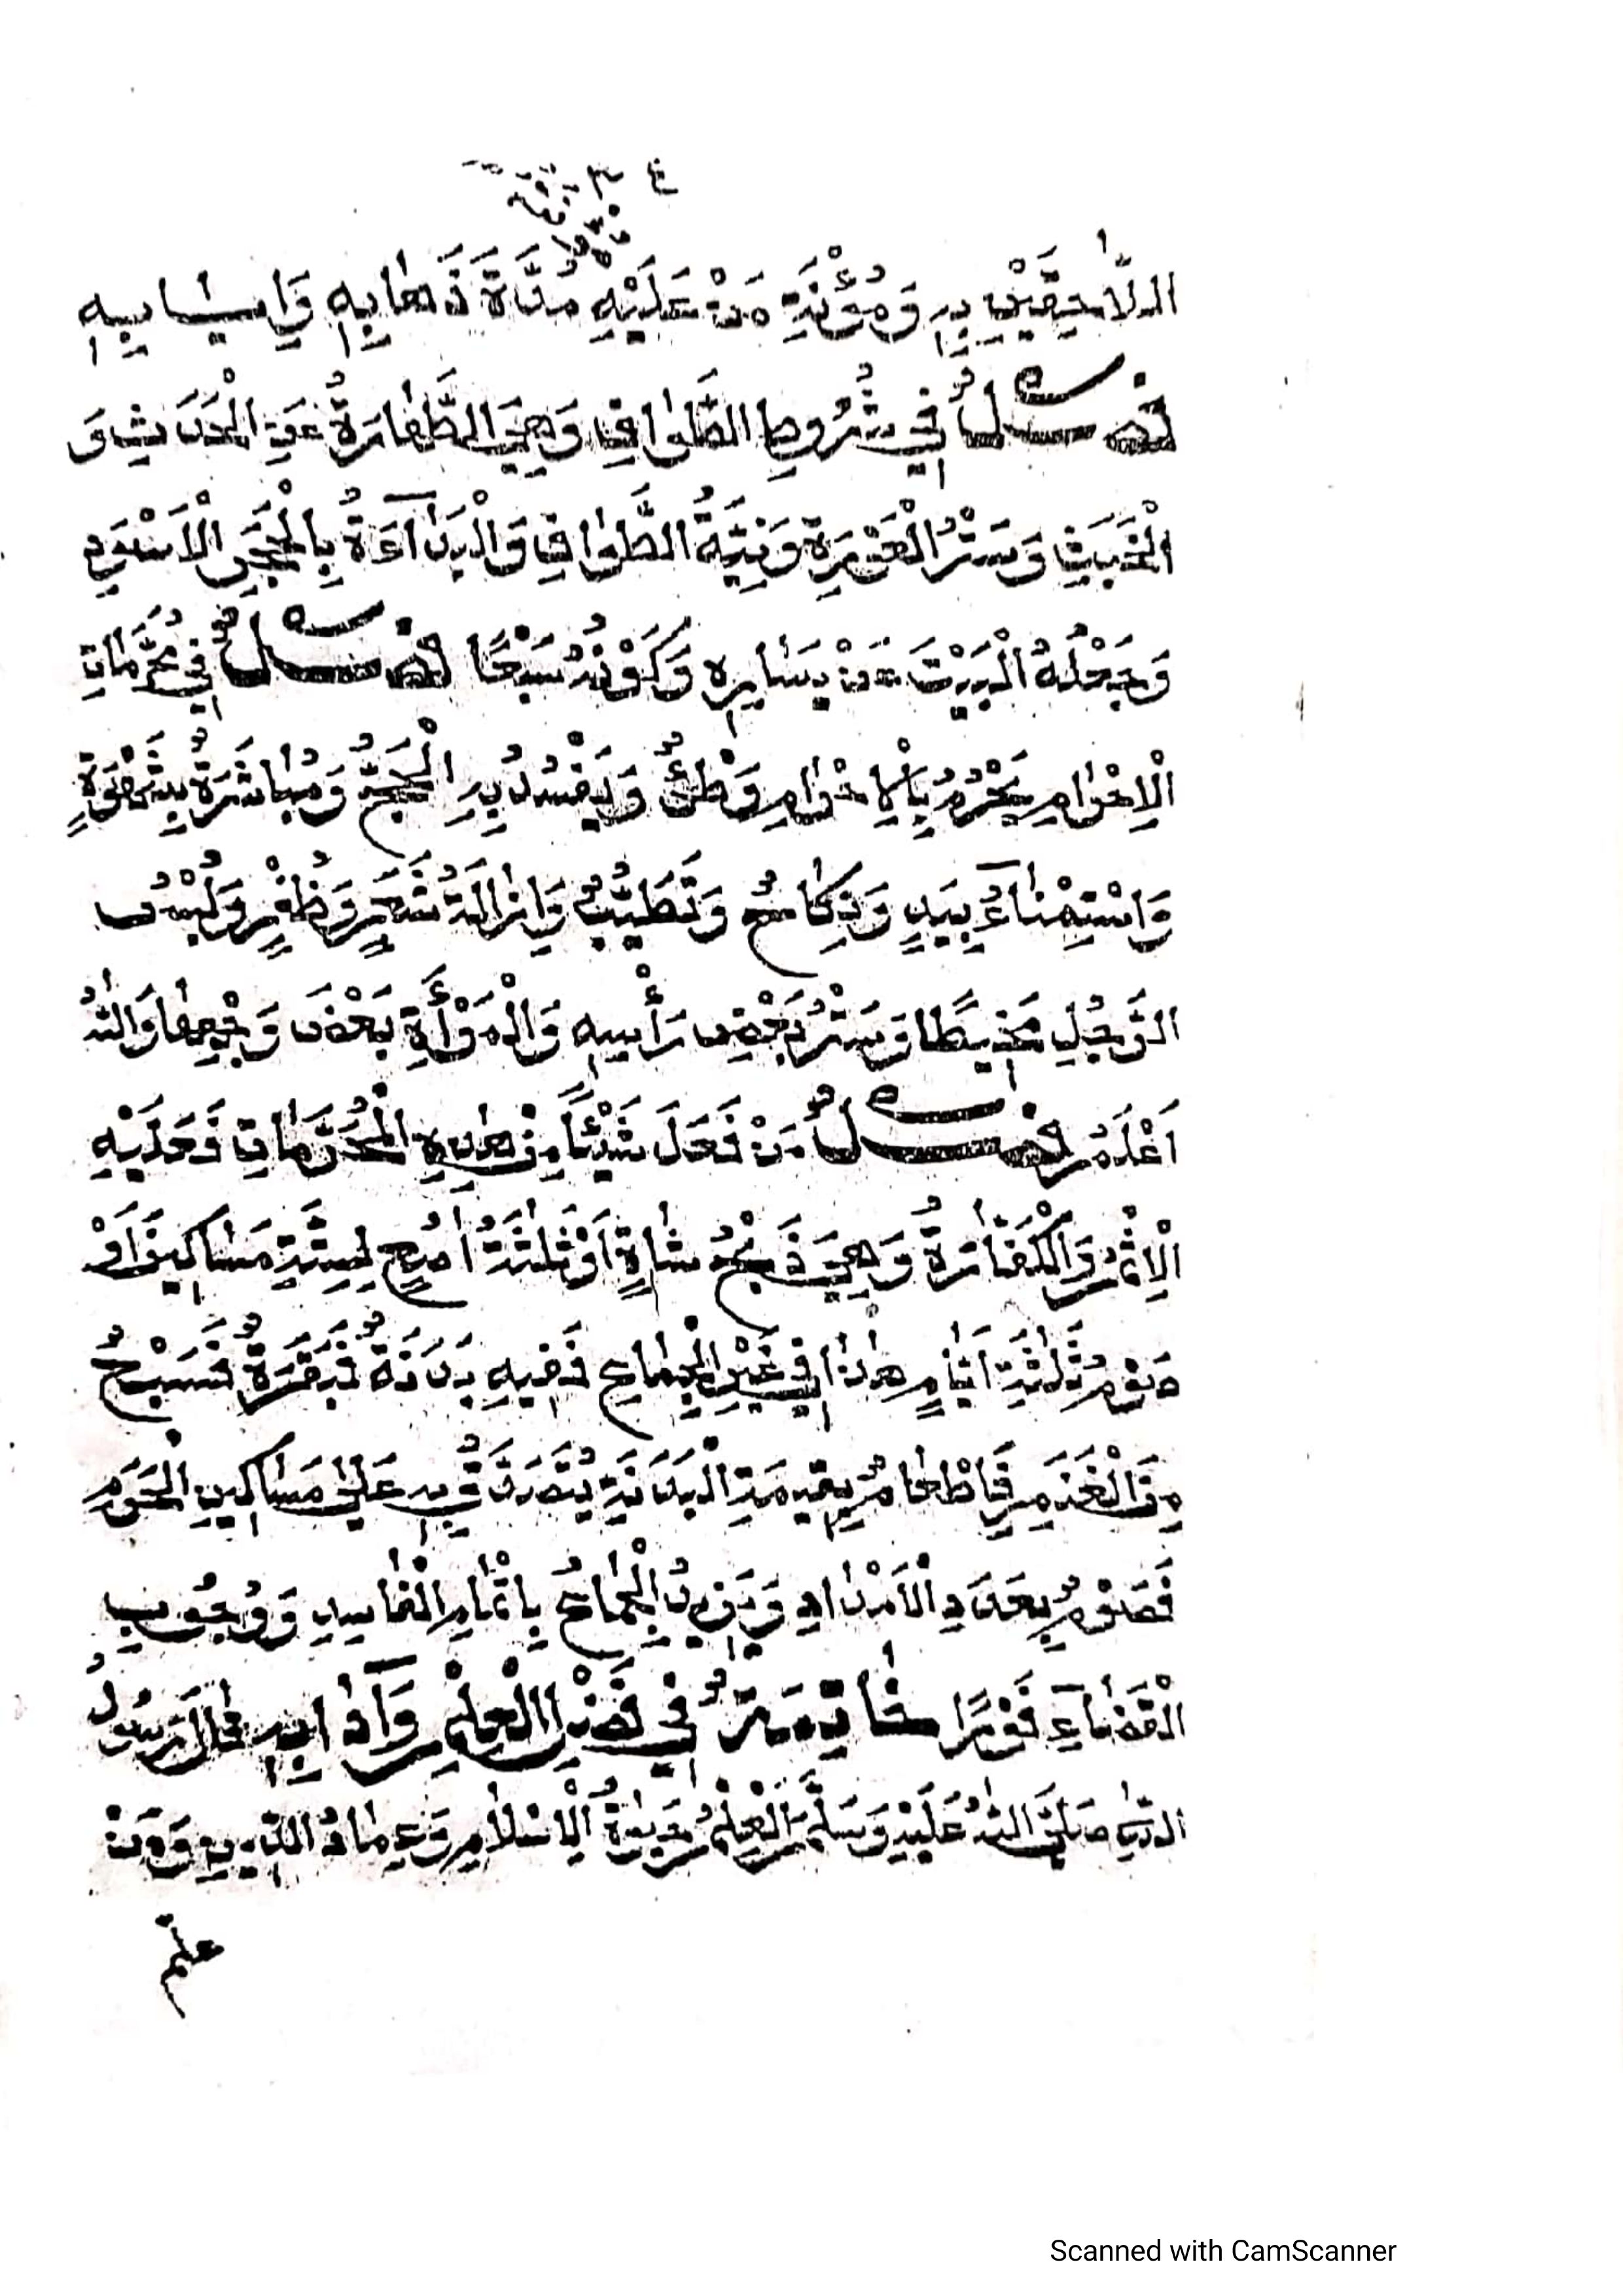 اللَّائِقَيْنِ بِهِ وَمُؤْنَةِ مَنْ عَلَيْهِ مُدَّةَ ذَهَابِهِ وَإِيَابِهِ
فَصْلٌ فِي شُرُوطِ الطَّوَافِ وَهِيَ الطَّهَارَةُ عَنِ الْحَدَثِ وَ
الْخَبَثِ وَسَتْرُ الْعَوْرَةِ وَنِيَّةُ الطَّوَافِ وَالْبَدَآءَةُ بِالْحَجَرِ الْأَسْوَدِ
وَجَعْلُهُ الْبَيْتَ عَنْ يَسَارِهِ وَكَوْنُهُ سَبْعًا فَصْلٌ فِي مُحَرَّمَاتِ
الْإِحْرَامِ يَحْرُمُ بِالْإِحْرَامِ وَطْئٌ وَيَفْسُدُ بِهِ الْحَجُّ وَمُبَاشَرَةٌ بِشَهْوَةٍ
وَاسْتِمْنَاءٌ بِيَدٍ وَنِكَاحٌ وَتَطَيُّبٌ وَإِزَالَةُ شَعَرٍ وَظُفْرٍ وَلُبْسُ
الرَّجُلِ مَخِيطًا وَسَتْرُ بَعْضِ رَأْسِهِ وَالْمَرْأَةِ بَعْضَ وَجْهِهَا وَاللهُ
أَعْلَمُ فَصْلٌ مَنْ فَعَلَ شَيْئًا مِنْ هٰذِهِ الْمُحَرَّمَاتِ فَعَلَيْهِ
الْإِثْمُ وَالْكَفَّارَةُ وَهِيَ ذَبْحُ شَاةٍ أَوْ ثَلٰثَةُ اٰصُعٍ لِسِتَّةِ مَسَاكِينَ أَوْ
صَوْمُ ثَلٰثَةِ أَيَّامٍ هٰذَا فِي غَيْرِ الْجِمَاعِ فَفِيهِ بَدَنَةٌ فَبَقَرَةٌ فَسَبْعٌ
مِنَ الْغَنَمِ فَإِطْعَامٌ بِقِيمَةِ الْبَدَنَةِ يُتَصَدَّقُ بِهِ عَلَى مَسَاكِينِ الْحَرَمِ
فَصَوْمٌ بِعَدَدِ الْأَمْدَادِ وَيَزِيدُ الْجِمَاعُ بِإِتْمَامِ الْفَاسِدِ وَوُجُوبِ
الْقَضَآءِ فَوْرًا خَاتِمَةٌ فِي فَضْلِ الْعِلْمِ وَآدَابِهِ قَالَ رَسُولُ
اللهِ صَلَّى اللهُ عَلَيْهِ وَسَلَّمَ الْعِلْمُ حَيٰوةُ الْإِسْلَامِ وَعِمَادُ الدِّينِ وَمَنْ
علّم
Scanned with CamScanner